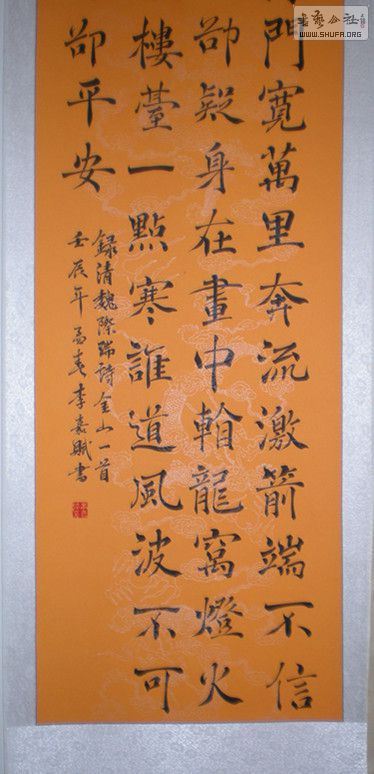 門寬萬里奔流激箭端不信
卻疑身在畫中看龍窩燈火
樓臺一點寒誰道風波不可
卻平安
録清魏際瑞詩金山一首
壬辰年孟春李嘉賦書
書藝公社
WWW.SHUFA.ORG